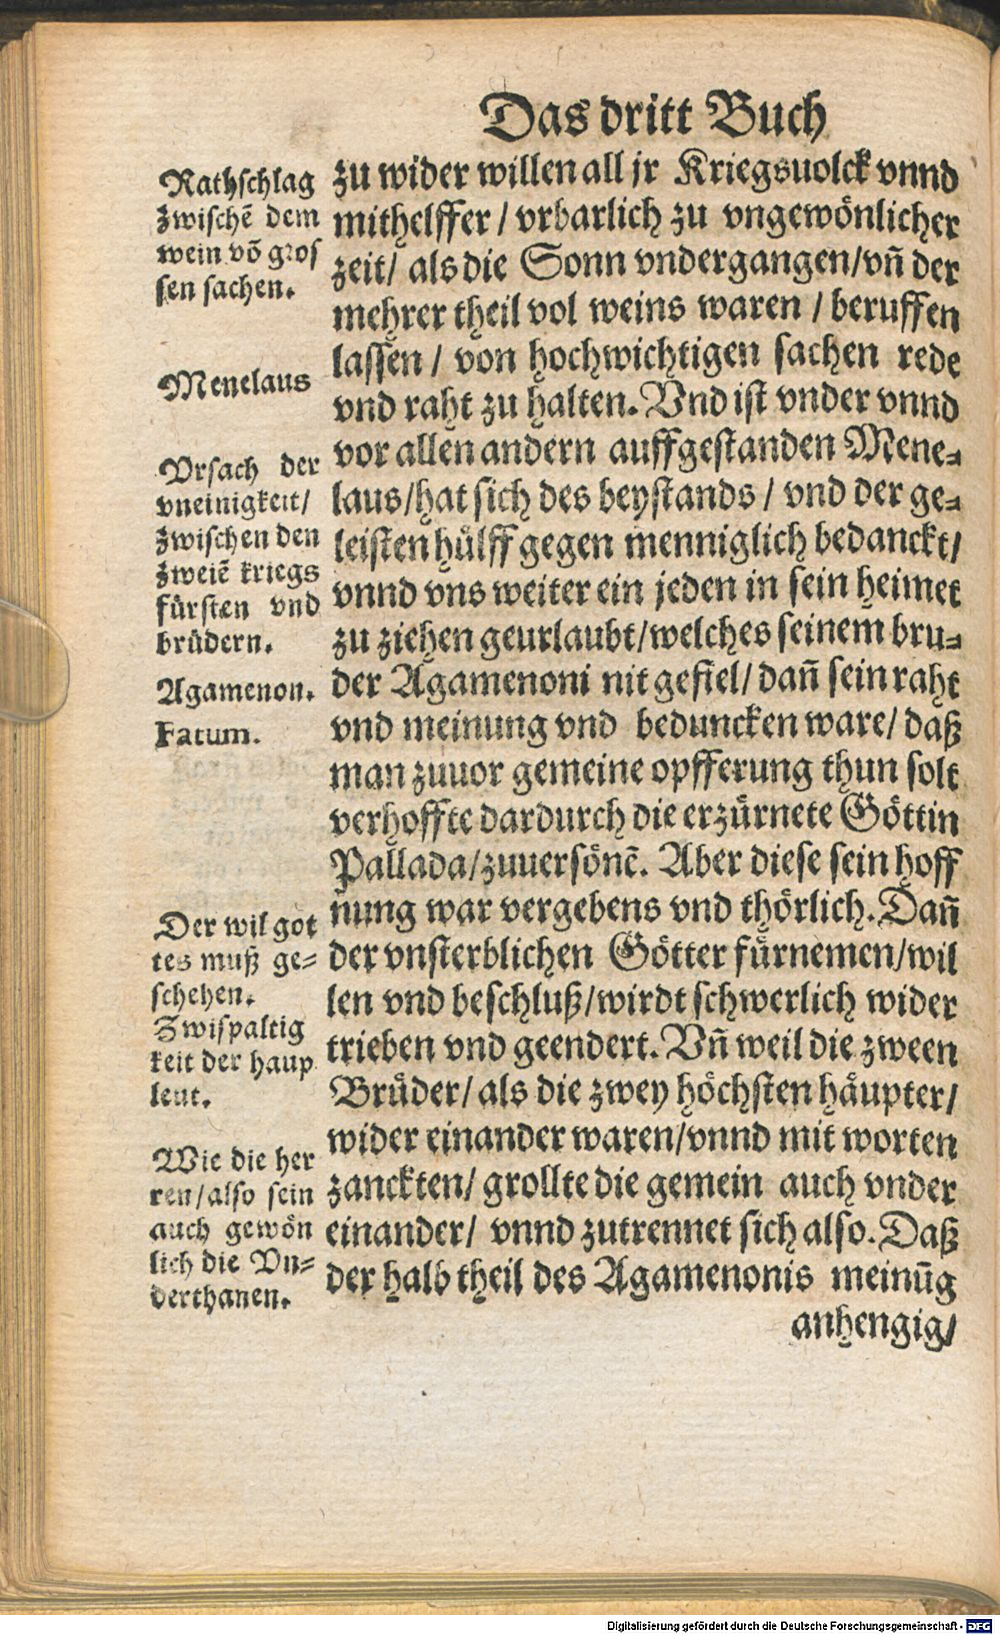 Das dritt Buch
Rathschlag
zwischē dem
wein vō gros
sen sachen.
Menelaus
Vrsach der
vneinigkeit/
zwischen den
zweiē kriegs
fürsten vnd
brüdern.
Agamenon.
Fatum.
Der wil got
tes muß ge=
schehen.
Zwispaltig
keit der haup
leut.
Wie die her
ren/also sein
auch gewön
lich die Vn=
derthanen.
zu wider willen all jr Kriegsuolck vnnd
mithelffer/ vrbarlich zu vngewönlicher
zeit/ als die Sonn vndergangen/vñ der
mehrer theil vol weins waren / beruffen
lassen / von hochwichtigen sachen rede
vnd raht zu halten. Vnd ist vnder vnnd
vor allen andern auffgestanden Mene=
laus/hat sich des beystands / vnd der ge=
leisten hülff gegen menniglich bedanckt/
vnnd vns weiter ein jeden in sein heimet
zu ziehen geurlaubt/welches seinem bru=
der Agamenoni nit gefiel/ dañ sein raht
vnd meinung vnd beduncken ware/ daß
man zuuor gemeine opfferung thun solt
verhoffte dardurch die erzürnete Göttin
Pallada/zuuersönē. Aber diese sein hoff
nung war vergebens vnd thörlich. Dañ
der vnsterblichen Götter fürnemen/wil
len vnd beschluß/wirdt schwerlich wider
trieben vnd geendert. Vñ weil die zween
Brüder/ als die zwey höchsten häupter/
wider einander waren/vnnd mit worten
zanckten/ grollte die gemein auch vnder
einander/ vnnd zutrennet sich also. Daß
der halb theil des Agamenonis meinūg
anhengig/
Digitalisierung gefördert durch die Deutsche Forschungsgemeinschaft - DFG